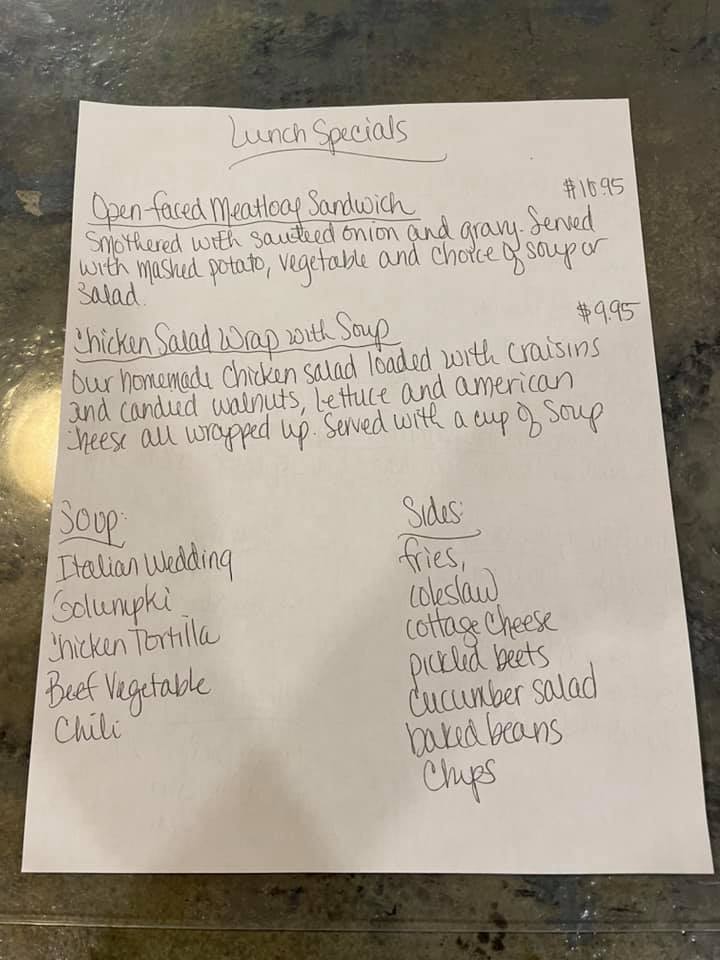 Lunch Specials
Open-faced Meatloaf Sandwich
$10.95
Smothered with sauteed onion and gravy. Served
with mashed potato, vegetable and choice of soup or
Salad.
Chicken Salad Wrap with Soup
$9.95
Our homemade chicken salad loaded with craisins
and candied walnuts, lettuce and american
cheese all wrapped up. Served with a cup of Soup
Soup:
Italian Wedding
Golumpki
Chicken Tortilla
Beef Vegetable
Chili
Sides:
fries,
coleslaw
cottage cheese
pickled beets
cucumber salad
baked beans
Chips